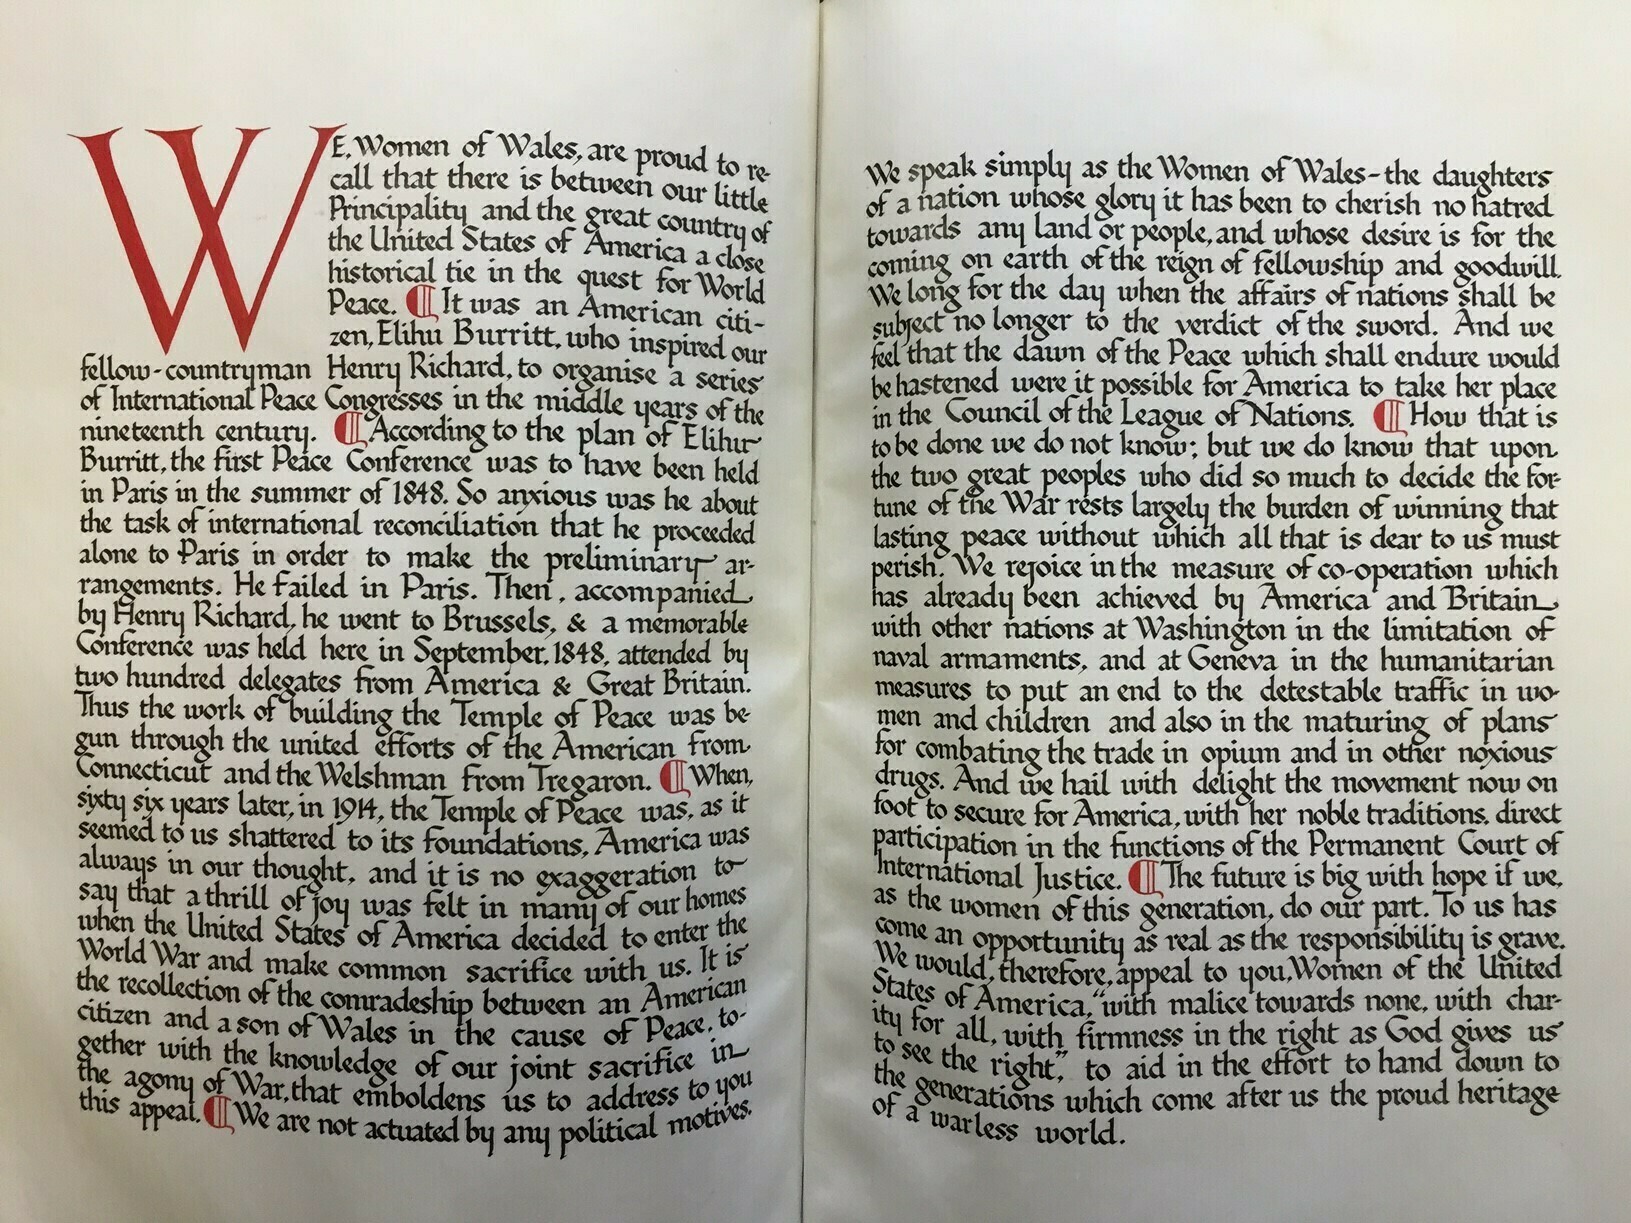 WE, Women of Wales, are proud to re-
call that there is between our little
Principality and the great country of
the United States of America a close
historical tie in the quest for World
Peace. ¶ It was an American citi-
zen, Elihu Burritt, who inspired our
fellow-countryman Henry Richard, to organise a series
of International Peace Congresses in the middle years of the
nineteenth century. ¶ According to the plan of Elihu
Burritt, the first Peace Conference was to have been held
in Paris in the summer of 1848. So anxious was he about
the task of international reconciliation that he proceeded
alone to Paris in order to make the preliminary ar-
rangements. He failed in Paris. Then, accompanied
by Henry Richard, he went to Brussels, & a memorable
Conference was held here in September, 1848, attended by
two hundred delegates from America & Great Britain.
Thus the work of building the Temple of Peace was be-
gun through the united efforts of the American from
Connecticut and the Welshman from Tregaron. ¶ When,
sixty six years later, in 1914, the Temple of Peace was, as it
seemed to us shattered to its foundations, America was
always in our thought, and it is no exaggeration to
say that a thrill of joy was felt in many of our homes
when the United States of America decided to enter the
World War and make common sacrifice with us. It is
the recollection of the comradeship between an American
citizen and a son of Wales in the cause of Peace, to-
gether with the knowledge of our joint sacrifice in
the agony of War, that emboldens us to address to you
this appeal. ¶ We are not actuated by any political motives.
We speak simply as the Women of Wales-the daughters
of a nation whose glory it has been to cherish no hatred
towards any land or people, and whose desire is for the
coming on earth of the reign of fellowship and goodwill.
We long for the day when the affairs of nations shall be
subject no longer to the verdict of the sword. And we
feel that the dawn of the Peace which shall endure would
be hastened were it possible for America to take her place
in the Council of the League of Nations. ¶ How that is
to be done we do not know; but we do know that upon
the two great peoples who did so much to decide the for-
tune of the War rests largely the burden of winning that
lasting peace without which all that is dear to us must
perish. We rejoice in the measure of co-operation which
has already been achieved by America and Britain
with other nations at Washington in the limitation of
naval armaments, and at Geneva in the humanitarian
measures to put an end to the detestable traffic in wo-
men and children and also in the maturing of plans
for combating the trade in opium and in other noxious
drugs. And we hail with delight the movement now on
foot to secure for America, with her noble traditions, direct
participation in the functions of the Permanent Court of
International Justice. ¶ The future is big with hope if we,
as the women of this generation, do our part. To us has
come an opportunity as real as the responsibility is grave.
We would, therefore, appeal to you, Women of the United
States of America, "with malice towards none, with char-
ity for all, with firmness in the right as God gives us
to see the right", to aid in the effort to hand down to
the generations which come after us the proud heritage
of a warless world.